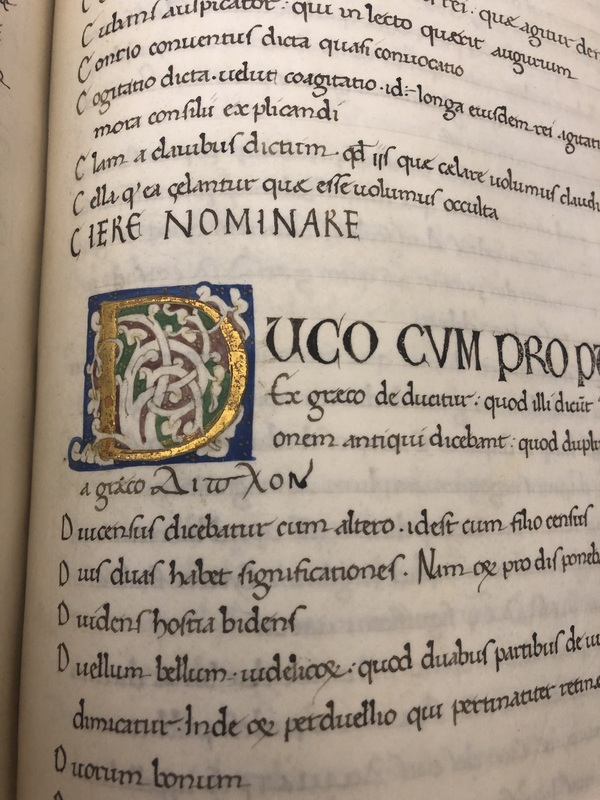 Cubans auspicatur: qui in lecto quærit augurium
Contio conventus dicta quasi convocatio
Cogitatio dicta. velut coagitatio. id: longa eiusdem rei. agitati
mora consilii explicandi
Clam a clavibus dictum. qd iis quæ cælare volumus claudi
Cella. q'ea çelantur quæ esse volumus occulta
CIERE NOMINARE
DUCO CVM PRO P
Ex græco deducitur: quod illi dicūt
onem antiqui dicebant: quod dupl
a græco
Duicensus dicebatur cum altero. idest cum filio census
Duis duas habet significationes. Nam & pro dis poneb
Duidens hostia bidens
Duellum bellum. videlic&. quod duabus partibus de
dimicatur. Inde & perduellio qui pertinaciter retin
Duorum bonum